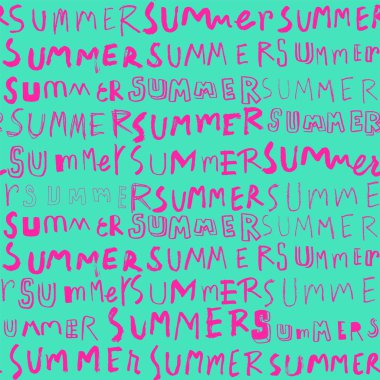 R SUMMER SUMMer SUMMER
SUMMER SUMMER SUmmer
SUMMER SUMMER SUMMER
R SUMMER SUMMER SUMMER
SUmmer SUMMER SUMMer
r SUMMER SUMMER SUMME
SUMMER SUMMER SUMMER
SUMMER SUMMER SUmmer
R SUmmer SUMMER SUMMER
SUMMER SUMMER SUMMERS
SUMMER SUMMER SUMMER